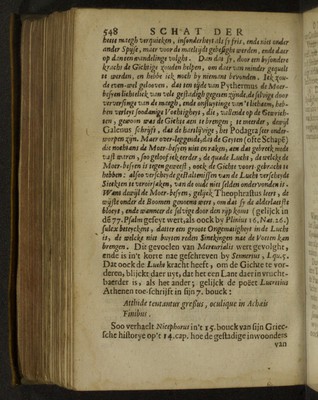 548 SCHAT DER
heete maegh verquicken, insonderheyt als sy fris, ende niet onder
ander Spijse, maer voor de maeltijdt gebesight werden, ende daer
op dan een wandelinge volght. Dan dat sy, door een bysondere
kracht de Gichtige souden helpen, om daer van minder gequelt
te werden, en hebbe ick noch by niemant bevonden. Ick sou-
de even-wel gelooven, dat ten tijde van Pythermus de Moer-
besyen lieffelick van vele gestadigh gegeten zijnde, de selvige door
verversinge van de maegh, ende onsluytinge van 't lichaem, heb-
ben verleyt soodanige Vochtigheyt, die, vallende op de Gewrich-
ten, gewoon was de Gichte aen te brengen; te meerder, dewijl
Galenus schrijft, dat die heerlijcige, het Podagra seer onder-
worpen zijn. Maer over-leggende, dat de Geyten (ofte Schapē)
die noehtans de Moer-besyen niet en raken, aen dat gebreck mede
vast waren, soo geloof ick eerder, de quade Lucht, de welcke de
Moer-besyen is tegen geweest, oock de Gichte voort-gebracht te
hebben: alsoo verscheyde gestaltenissen van de Lucht verscheyde
Sieckten te veroorsaken, van de oude niet selden ondervonden is.
Want dewijl de Moer-besyen, gelijck Theophrastus leert, de
wijste onder de Boomen genoemt wert, om dat sy de alderlaetste
bloeyt, ende wanneer de selvige door den rijp komt (gelijck in
dē 77. Psalm geseyt wert, als oock by Plinius 16. Nat. 26.)
sulcx beteyckent, datter een groote Ongematigheyt in de Lucht
is, de welcke niet buyten reden Sinckingen nae de Voeten kan
brengen. Dit gevoelen van Mercurialis wert gevolght,
ende is in't korte nae geschreven by Sennertus, l. qu. 5.
Dat oock de Lucht kracht heeft, om de Gichte te vor-
deren, blijckt daer uyt, dat het een Lant daer in vrucht-
baerder is, als het ander; gelijck de poët Lucretius
Athenen toe-schrijft in sijn 7. bouck:
Atthide tentantur gressus, oculique in Achæis
Finibus.
Soo verhaelt Nicephorus in't 15. bouck van sijn Griec-
sche historye op't 14. cap. hoe de gestadige inwoonders
van